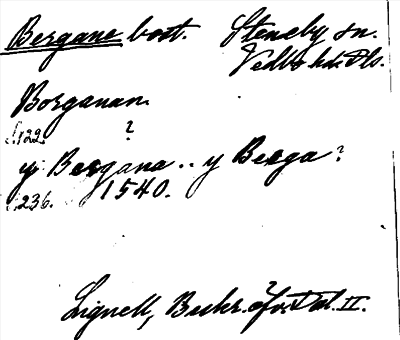 Bergane bost. Steneby sn.
Vedbo hd. Dls.
Borganan.
S. 122. ?
y Bergana .. y Berga?
S. 236. 1540.
Lignell, Beskr. öfv. Dal. II.